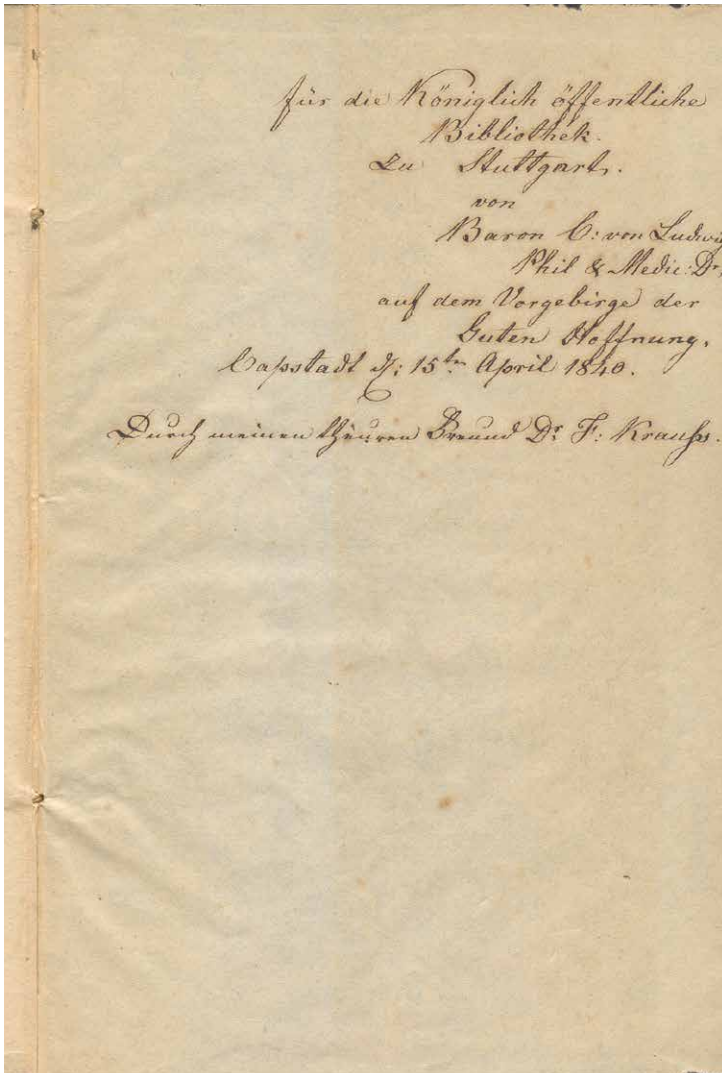 für die Königlich öffentliche
Bibliothek.
Zu Stuttgart.
von
Baron C: von Ludwig
Phil & Medic: Dr.
auf dem Vorgebirge der
Guten Hoffnung.
Capstadt d: 15ten April 1840.
Durch meinen theuren Freund Dr F: Krauss.